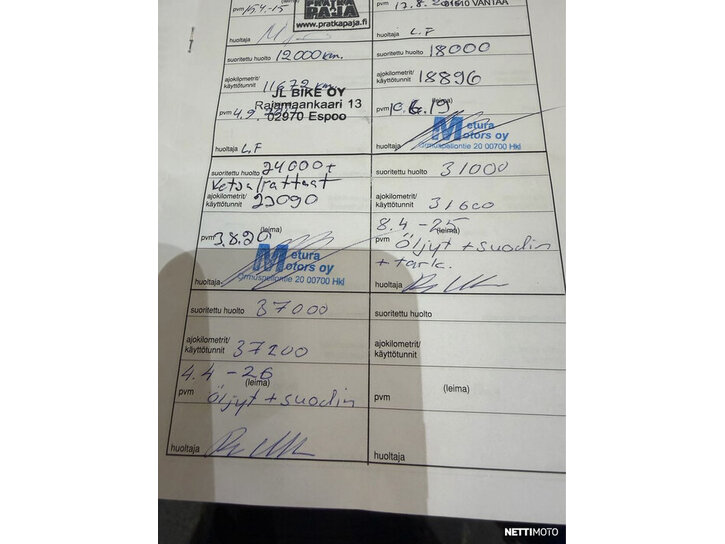 pvm 15.4.-15
PRATKA
PAJA
www.pratkapaja.fi
huoltaja
01510 VANTAA
huoltaja L.F
suoritettu huolto 12000km.
ajokilometrit/
käyttötunnit 11672 km.
JL BIKE OY
Rajamaankaari 13
02970 Espoo
pvm 4.9.
huoltaja L.F
suoritettu huolto 18000
ajokilometrit/
käyttötunnit 18896
(leima)
pvm 10.6.19
Metura
Motors oy
00700 Hki
huoltaja
suoritettu huolto 24000 +
Vetoalrattaat
ajokilometrit/
käyttötunnit 23090
(leima)
pvm 3.8.20
Metura
Motors oy
20 00700 Hki
huoltaja
suoritettu huolto 31000
ajokilometrit/
käyttötunnit 31600
8.4 -25
(leima)
pvm öljyt + suodin
+ tark.
huoltaja
suoritettu huolto 37000
ajokilometrit/
käyttötunnit 37200
4.4 -26
(leima)
pvm öljyt + suodin
huoltaja
suoritettu huolto
ajokilometrit/
käyttötunnit
(leima)
pvm
huoltaja
NETTIMOTO